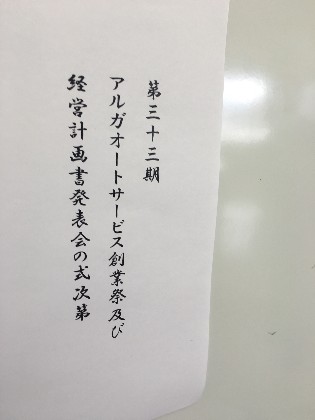 第三十三期
アルガオートサービス創業祭及び
経営計画書発表会の式次第